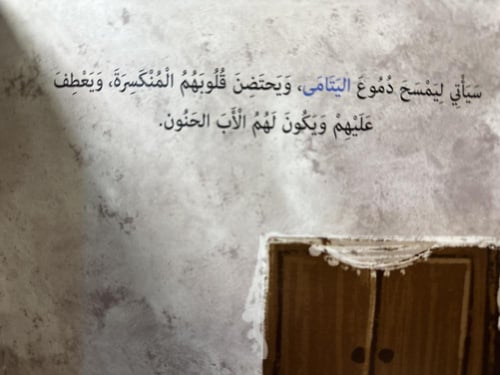 سَيَأْتِي لِيَمْسَحَ دُمُوعَ اليَتَامَى، وَيَحتَضِنَ قُلُوبَهُمُ الْمُنْكَسِرَةَ، وَيَعْطفَ
عَلَيْهِمْ وَيَكُونَ لَهُمُ الْأَبَ الحَنُون.